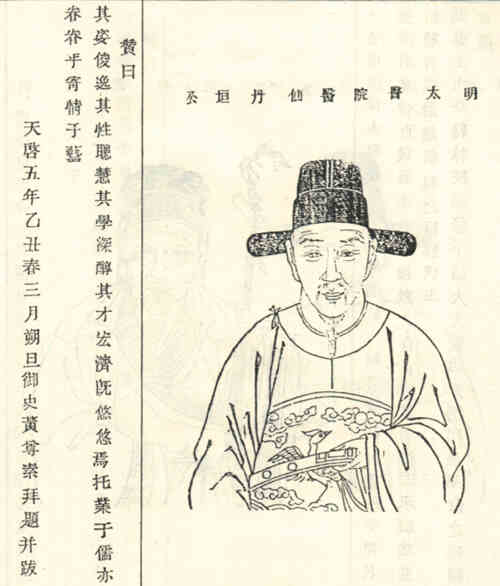 明太醫院醫仙丹垣公
贊曰
其姿俊逸其性聰慧其學深醇其才宏濟既悠悠焉托業于儒亦
眷眷乎寄情于藝
天啓五年乙丑春三月朔旦御史黃尊素拜題并跋